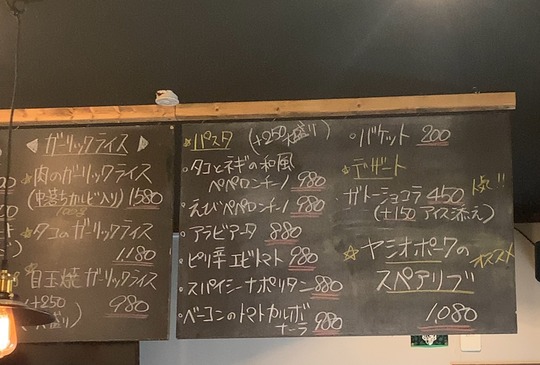 ガーリックライス
肉のガーリックライス
(中落ちカルビ入り) 1580
100g
タコのガーリックライス
1,180
目玉焼ガーリックライス
+250 980
盛り)
パスタ (+250 大盛り)
タコとネギの和風
ペペロンチーノ 980
えびペペロンチーノ 980
アラビアータ 880
ピリ辛エビトマト 980
スパイシーナポリタン 880
ベーコンのトマトカルボ
ナーラ 980
バケット 200
デザート
ガトーショコラ 450 人気!!
(+150 アイス添え)
ヤシオポークの オススメ
スペアリブ
1,080